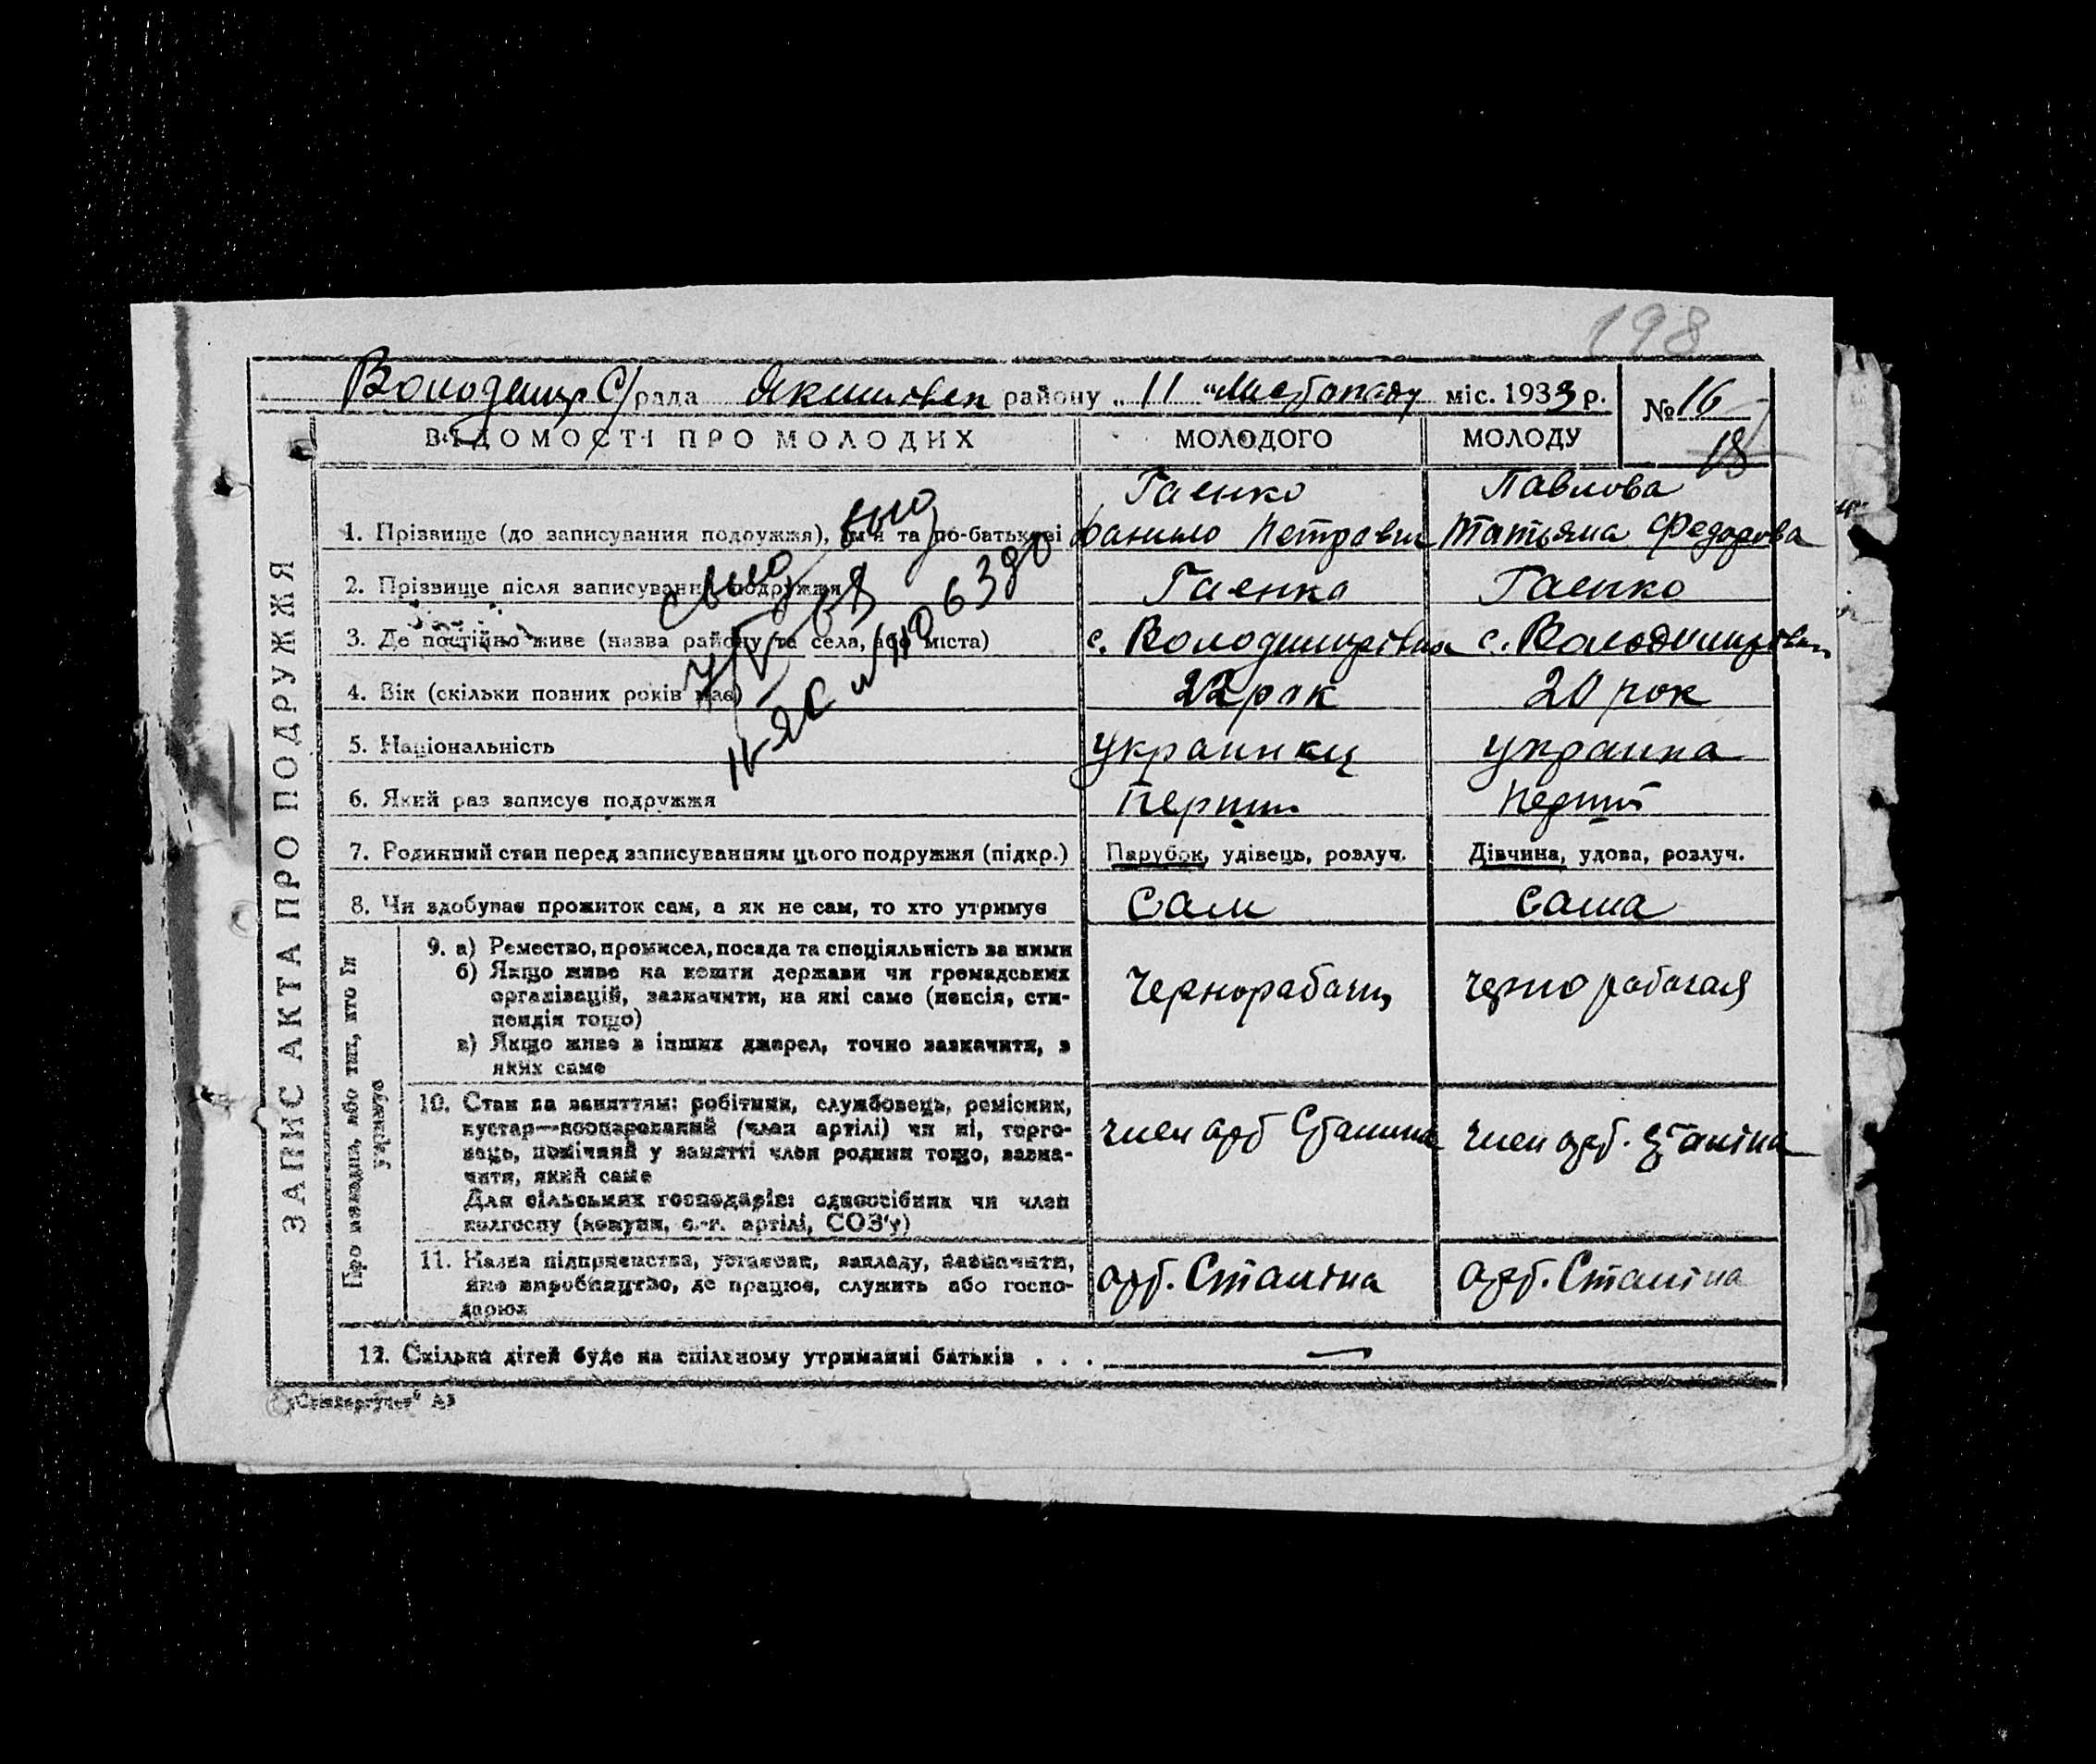 198
Володимир С/рада Якимівськ району „ 11 " Листопаду міс. 1933 р. № 16
18
ВІДОМОСТІ ПРО МОЛОДИХ МОЛОДОГО МОЛОДУ
Гаенко Павлова
1. Прізвище (до записування подружжя), ім'я та по-батькові Данило Петрович Татьяна Федорова
2. Прізвище після записування подружжя Гаенко Гаенко
3. Де постійно живе (назва району та села, або міста) с. Володимирівка с. Володимирівка
4. Вік (скільки повних років має) 22 рок 20 рок
5. Національність украинец украинка
6. Який раз записує подружжя Перший Перший
7. Родинний стан перед записуванням цього подружжя (підкр.) Парубок, удівець, розлуч. Дівчина, удова, розлуч.
8. Чи здобуває прожиток сам, а як не сам, то хто утримує Сам Сама
9. а) Ремество, промисел, посада та спеціяльність за ними
б) Якщо живе на кошти держави чи громадських
організацій, зазначити, на які саме (пенсія, сти-
пендія тощо)
Чернорабочий Чернорабочая
в) Якщо живе з інших джерел, точно зазначити, з
яких саме
10. Стан за заняттям: робітник, службовець, ремісник,
кустар—кооперований (член артілі) чи ні, торго-
вець, помічний у занятті член родини тощо, зазна-
чити, який саме
член арт Сталина член арт. Сталіна
Для сільських господарів: одноосібник чи член
колгоспу (комуни, с.-г. артілі, СОЗ'у)
11. Назва підприємства, установи, закладу, зазначити,
яке виробництво, де працює, служить або госпо-
дарює
арт. Сталіна арт. Сталіна
12. Скільки дітей буде на спільному утриманні батьків . . . —
ЗАПИС АКТА ПРО ПОДРУЖЖЯ
Про молодих, або тих, хто їх
утримує
6380